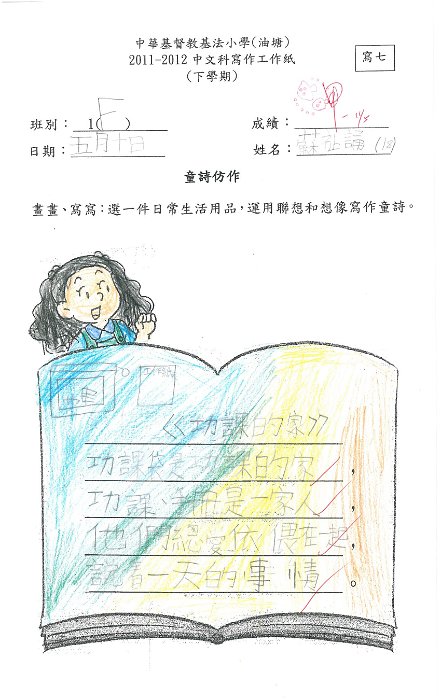 中華基督教基法小學(油塘)
2011-2012 中文科寫作工作紙
(下學期)
寫七
班別：1(E)
成績：
日期：五月十日
姓名：蘇 (18)
童詩仿作
畫畫、寫寫：選一件日常生活用品，運用聯想和想像寫作童詩。
《功課的家》
功課袋是功課的家，
功課、手冊是一家人，
他們總愛依偎在起，
說着一天的事情。